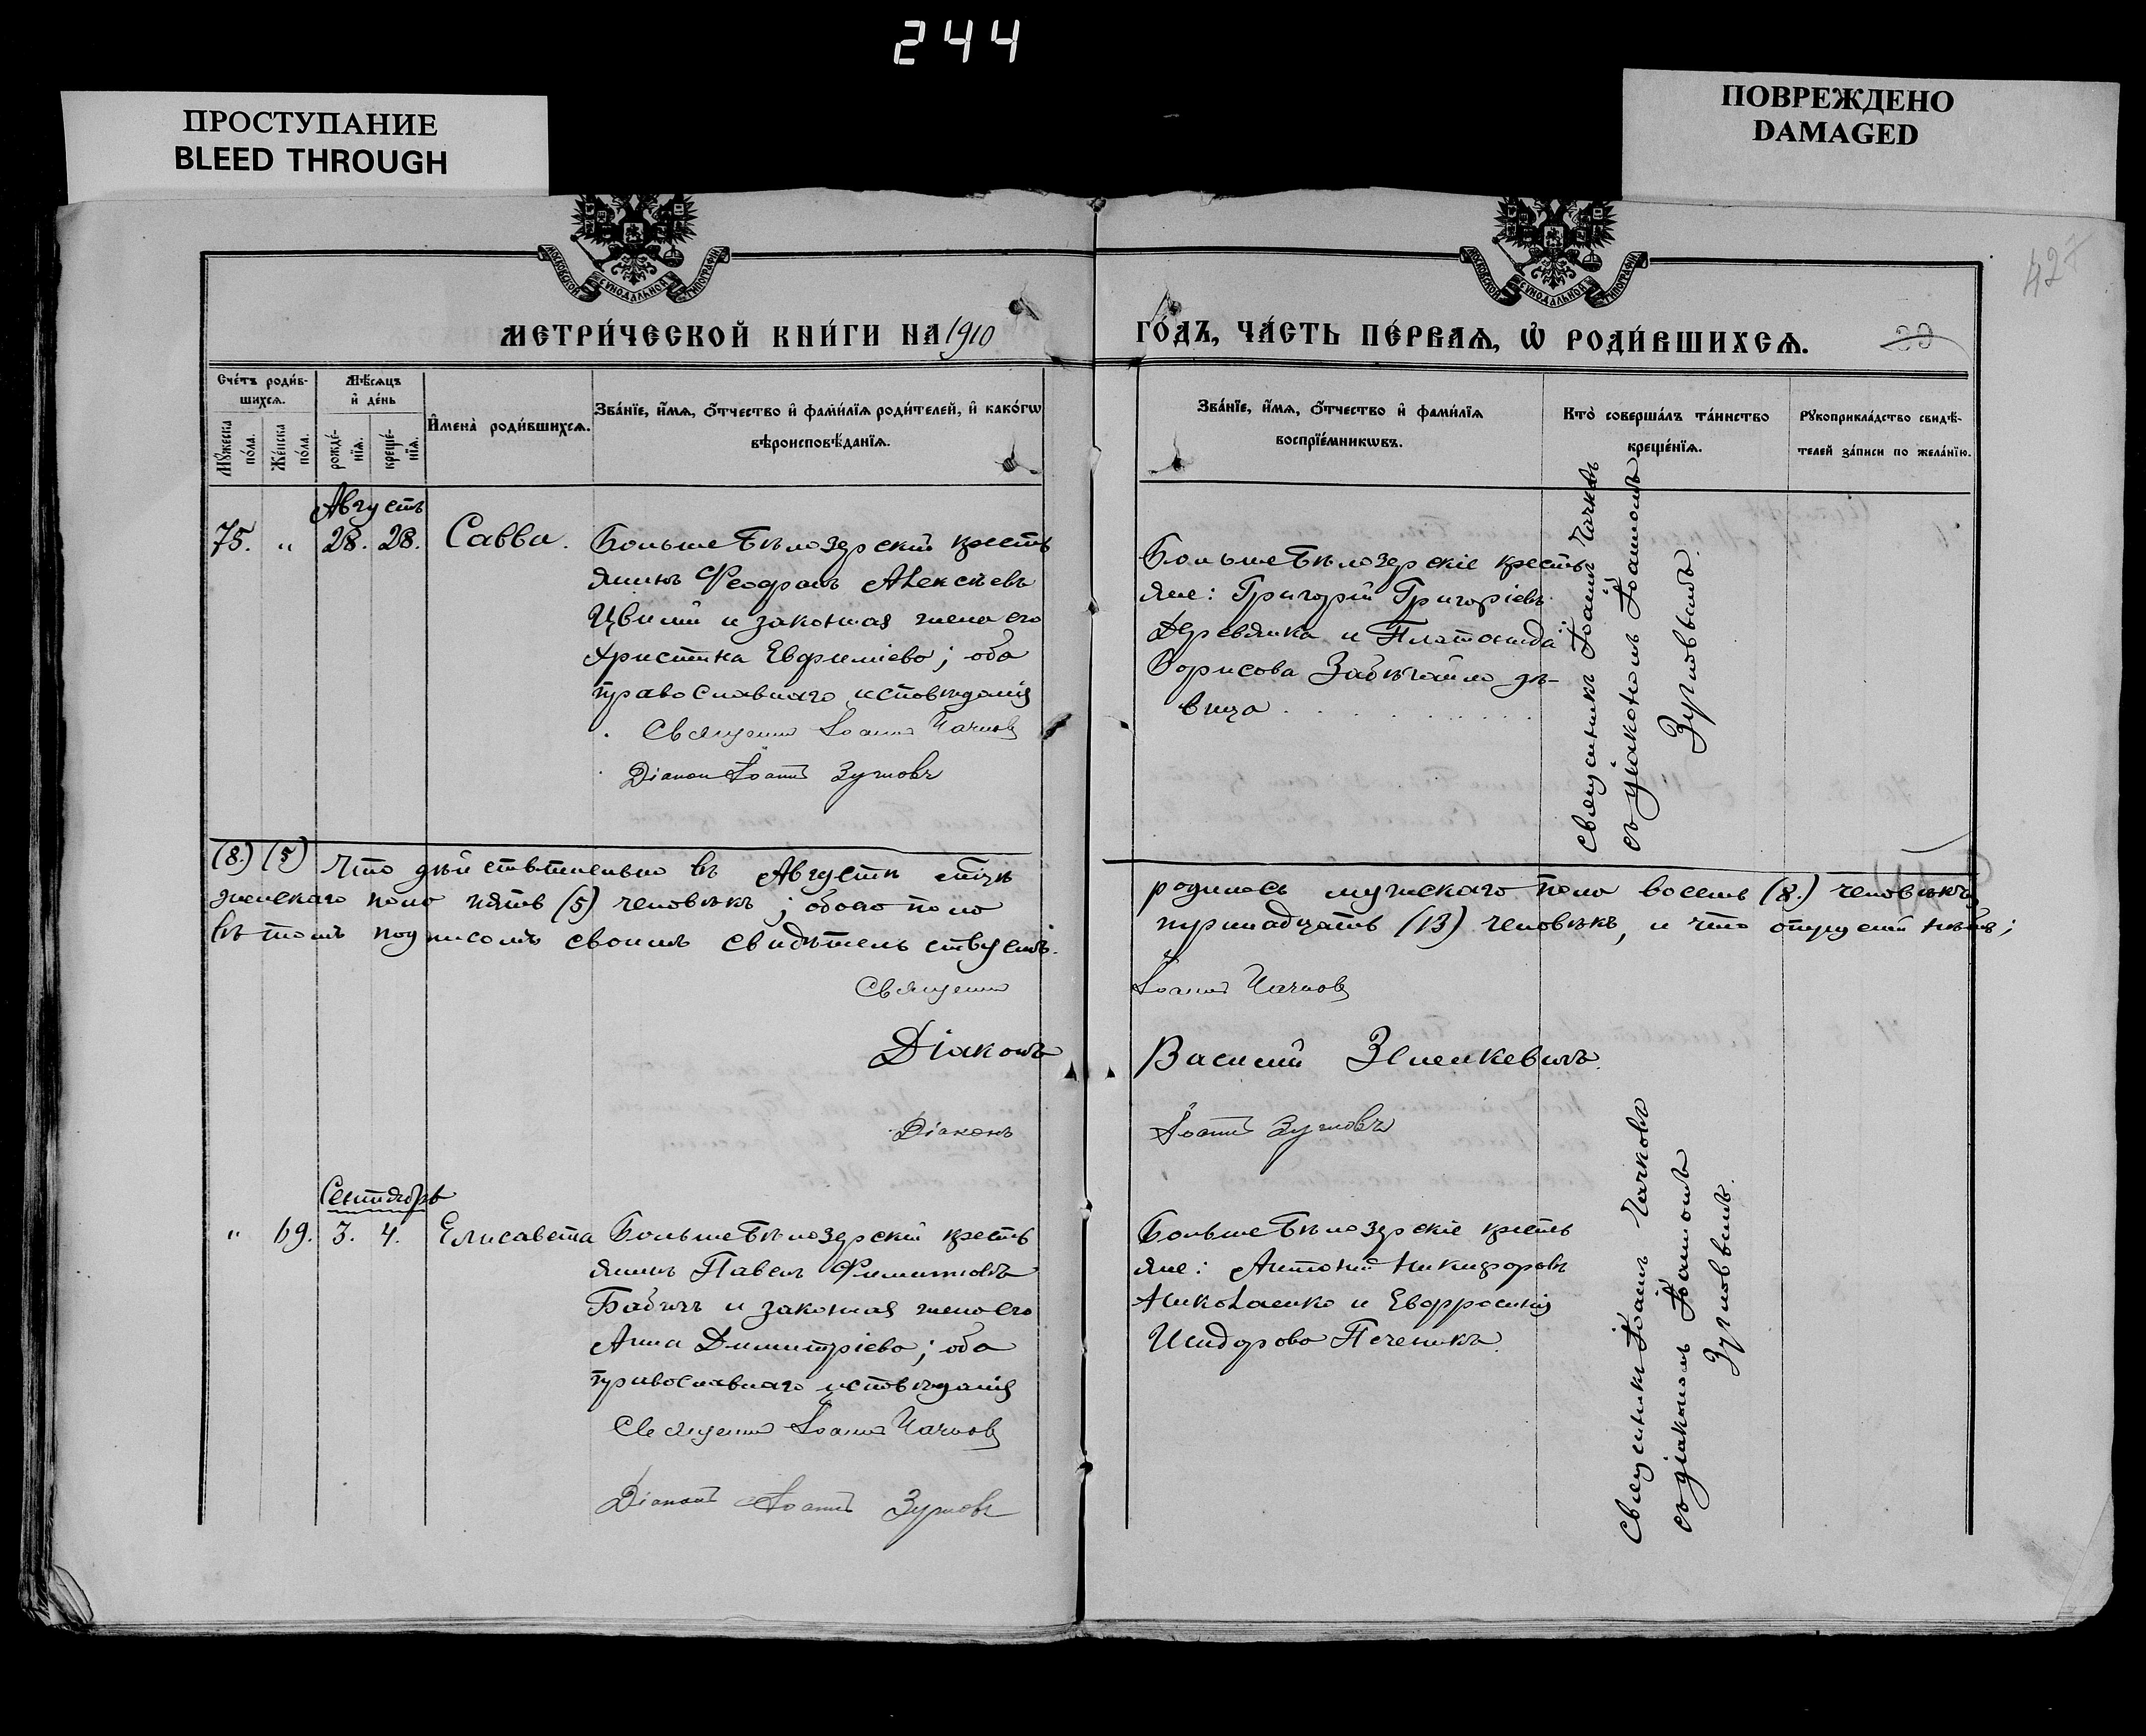 244
ПРОСТУПАНИЕ
BLEED THROUGH
ПОВРЕЖДЕНО
DAMAGED
МОСКОВСКОЙ СУНОДАЛЬНОЙ ТИПОГРАФІИ
МОСКОВСКОЙ СУНОДАЛЬНОЙ ТИПОГРАФІИ
МЕТРИ́ЧЕСКОЙ КНИ́ГИ НА 1910
ГО́ДЪ, ЧА́СТЬ ПЕ́РВАѦ, Ѡ҆ РОДИ́ВШИХСѦ.
Сче́тъ роди́в-
шихсѧ.
Мꙋ́жеска по́ла.
Же́нска по́ла.
Мѣ́сѧцъ
и҆ де́нь
рожде́-
нїѧ.
креще́-
нїѧ.
И҆мена̀ роди́вшихсѧ.
Зва́нїе, и҆́мѧ, ѻ҆́тчество и҆ фами́лїѧ роди́телей, и҆ како́гѡ
вѣроисповѣ́данїѧ.
Зва́нїе, и҆́мѧ, ѻ҆́тчество и҆ фами́лїѧ
воспрїе́мникѡвъ.
Кто̀ соверша́лъ та́инство
креще́нїѧ.
Рꙋкоприкла́дство свидѣ́-
телей за́писи по жела́нїю.
Августъ
75. " 28. 28. Савва.
Больше Бѣлозерскій кресть
янинъ Феофанъ Алексѣевъ
Цвилій и законная жена его
Христина Евфиміева; оба
православнаго исповѣданія
Священникъ Іоаннъ Чачковъ
Діаконъ Іоаннъ Зугловъ
Больше Бѣлозерскіе кресть
яне: Григорій Григоріевъ
Деревянка и Платонида
Борисова Забѣгайло дѣ-
вица
Священникъ Іоаннъ Чачковъ
съ діакономъ Іоанномъ
Зугловымъ.
(8.) (5) Что дѣйствительно въ Августѣ мѣсяцѣ родилось мужскаго пола восемь (8.) человѣкъ,
женскаго пола пять (5) человѣкъ; обоего пола тринадцать (13) человѣкъ, и что опущеній нѣтъ;
въ томъ подписомъ своимъ свидѣтельствуемъ.
Священникъ Іоаннъ Чачковъ
Діаконъ Василій
Діаконъ Іоаннъ Зугловъ
Сентябрь
" 69. 3. 4. Елисавета
Больше Бѣлозерскій кресть
янинъ Павелъ Филипповъ
Бабичъ и законная жена его
Анна Димитріева; оба
православнаго исповѣданія
Священникъ Іоаннъ Чачковъ
Діаконъ Іоаннъ Зугловъ
Больше Бѣлозерскіе кресть
яне: Антоній Никифоровъ
Николаенко и Евфросинія
Исидорова Печеникъ.
Священникъ Іоаннъ Чачковъ
съ діакономъ Іоанномъ
Зугловымъ.